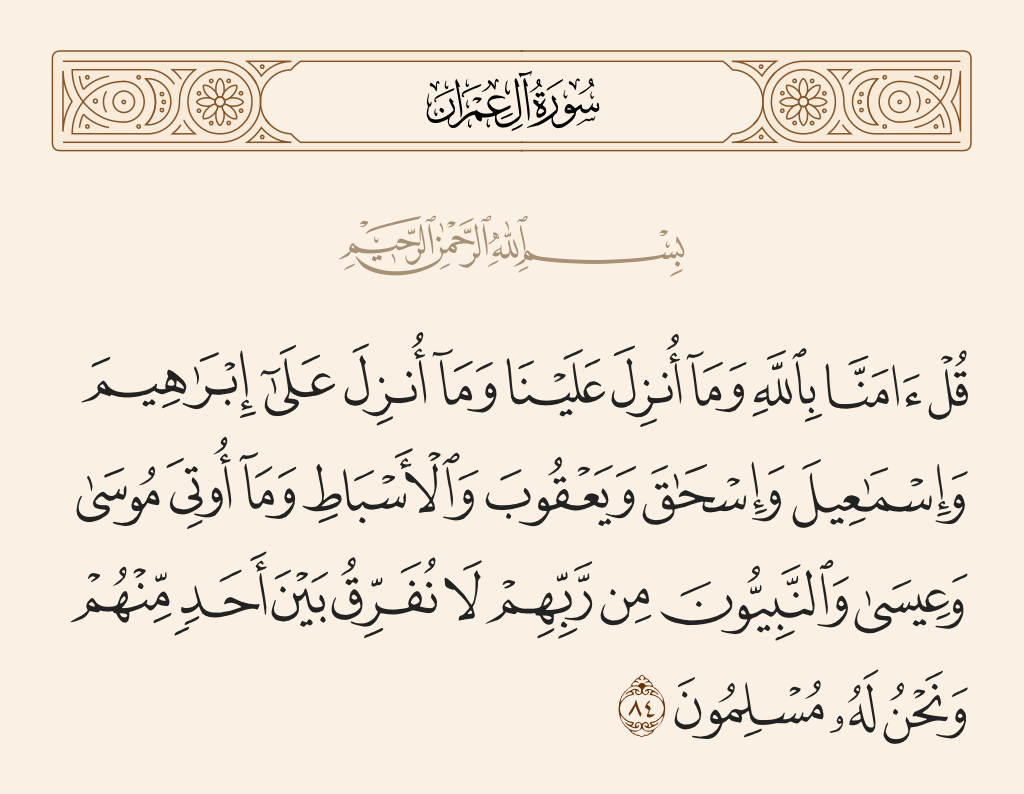 سُورَةُ آلِ عِمْرَان
بِسْمِ ٱللَّهِ ٱلرَّحْمَٰنِ ٱلرَّحِيمِ
قُلْ ءَامَنَّا بِٱللَّهِ وَمَآ أُنزِلَ عَلَيْنَا وَمَآ أُنزِلَ عَلَىٰٓ إِبْرَٰهِيمَ
وَإِسْمَٰعِيلَ وَإِسْحَٰقَ وَيَعْقُوبَ وَٱلْأَسْبَاطِ وَمَآ أُوتِىَ مُوسَىٰ
وَعِيسَىٰ وَٱلنَّبِيُّونَ مِن رَّبِّهِمْ لَا نُفَرِّقُ بَيْنَ أَحَدٍ مِّنْهُمْ
وَنَحْنُ لَهُۥ مُسْلِمُونَ ٨٤